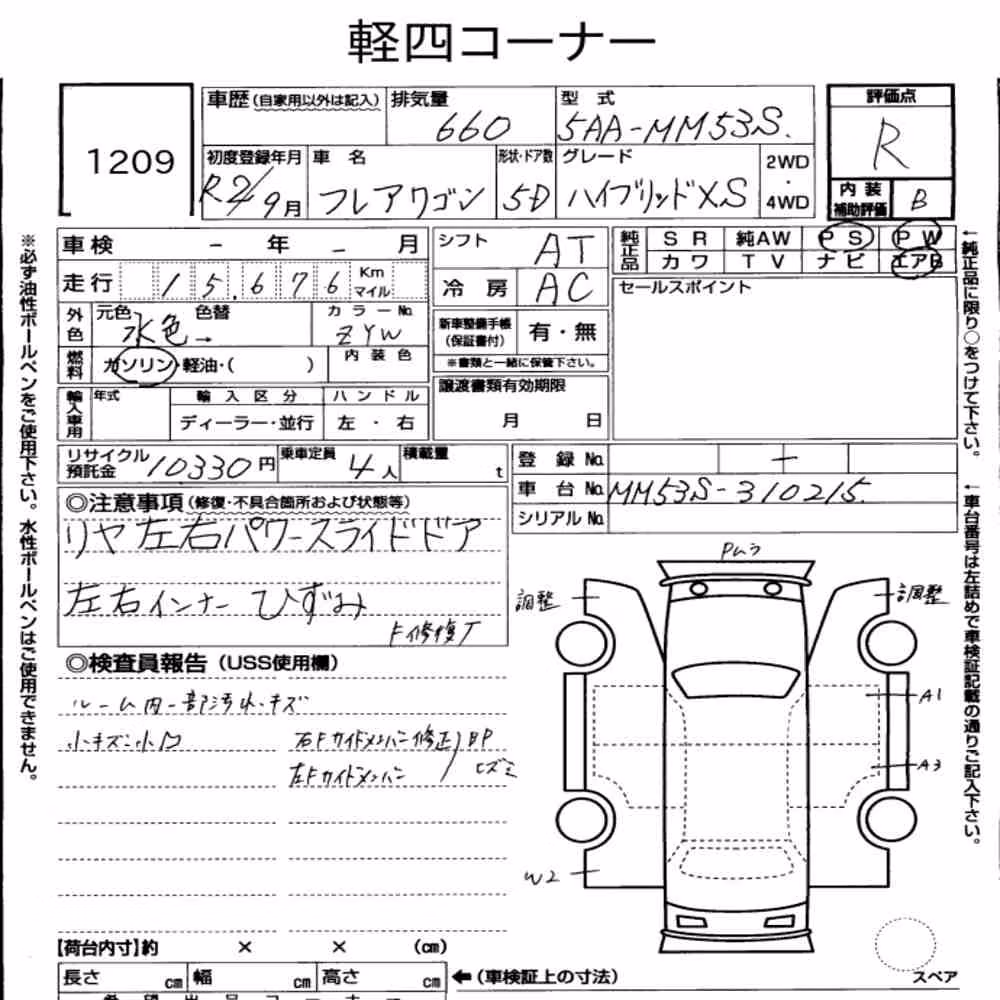 軽四コーナー
1209
車歴 (自家用以外は記入) 排気量 660
型式 5AA-MM53S.
評価点 R
初度登録年月 R2/9月
車名 フレアワゴン
形状・ドア数 5D
グレード ハイブリッドXS
2WD・4WD
内装補助評価 B
車検 - 年 - 月
シフト AT
純正品 SR 純AW PS PW
カワ TV ナビ エアB
走行 15,676 Km マイル
冷房 AC
セールスポイント
外色 元色 水色→ 色替 カラーNo. ZYW
新車整備手帳(保証書付) 有・無
※書類と一緒に保管下さい。
燃料 ガソリン・軽油・( ) 内装色
譲渡書類有効期限
月 日
輸入車用 年式 輸入区分 ハンドル
ディーラー・並行 左・右
リサイクル預託金 10330円 乗車定員 4人 積載量 t
登録No. -
車台No. MM53S-310215.
シリアルNo.
◎注意事項 (修復・不具合箇所および状態等)
リヤ左右パワースライドドア
左右インナー ひずみ
F修復了
◎検査員報告 (USS使用欄)
ルーム内一部汚れ・キズ
小キズ・小凹 右Fサイドメンバー修正
左Fサイドメンバー
BP
ヒズミ
調整
調整
A1
A3
W2
【荷台内寸】約 × × (cm)
長さ cm 幅 cm 高さ cm ←(車検証上の寸法)
スペア
※必ず油性ボールペンをご使用下さい。水性ボールペンはご使用できません。
←純正品に限り○をつけて下さい。
←車台番号は左詰めで車検証記載の通りご記入下さい。